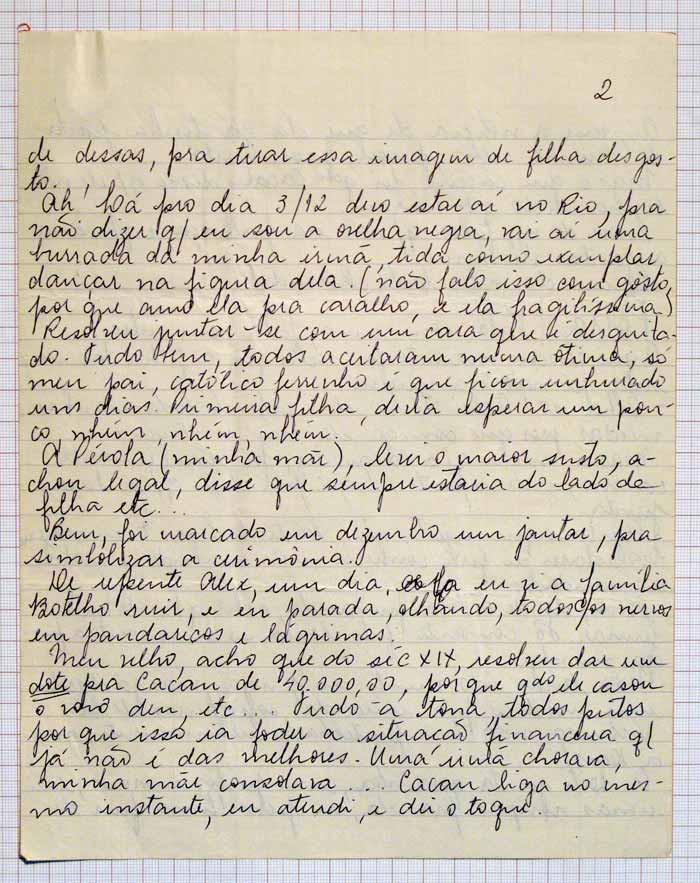 2
de dessas, pra tirar essa imagem de filha desgos-
to.
Ah! Lá pro dia 3/12 devo estar aí no Rio, pra
não dizer q/ eu sou a ovelha negra, vai aí uma
burrada da minha irmã, tida como exemplar,
dançar na figura dela. (não falo isso com gôsto,
por que amo ela pra caralho, e ela fragilíssima)
Resolveu juntar-se com um cara que é desquita-
do. Tudo bem, todos aceitaram numa ótima, só
meu pai, católico ferrenho é que ficou emburrado
uns dias. Primeira filha, devia esperar um pou-
co, nhém, nhém, nhém.
A Pérola (minha mãe), levei o maior susto, a-
chou legal, disse que sempre estaria do lado da
filha etc...
Bem, foi marcado em dezembro um jantar, pra
simbolizar a cerimônia.
De repente Alex, um dia, eu vi a família
Botelho ruir, e eu parada, olhando, todos c/os nervos
em pandarecos e lágrimas.
Meu velho, acho que do séc XIX, resolveu dar um
dote pra Cacau de 40.000,00, por que qdo ele casou
o vovô deu, etc... Tudo à tona, todos putos
por que isso ia foder a situação financeira q/
já não é das melhores. Uma irmã chorava,
minha mãe consolava... Cacau liga no mes-
mo instante, eu atendi, e dei o toque.